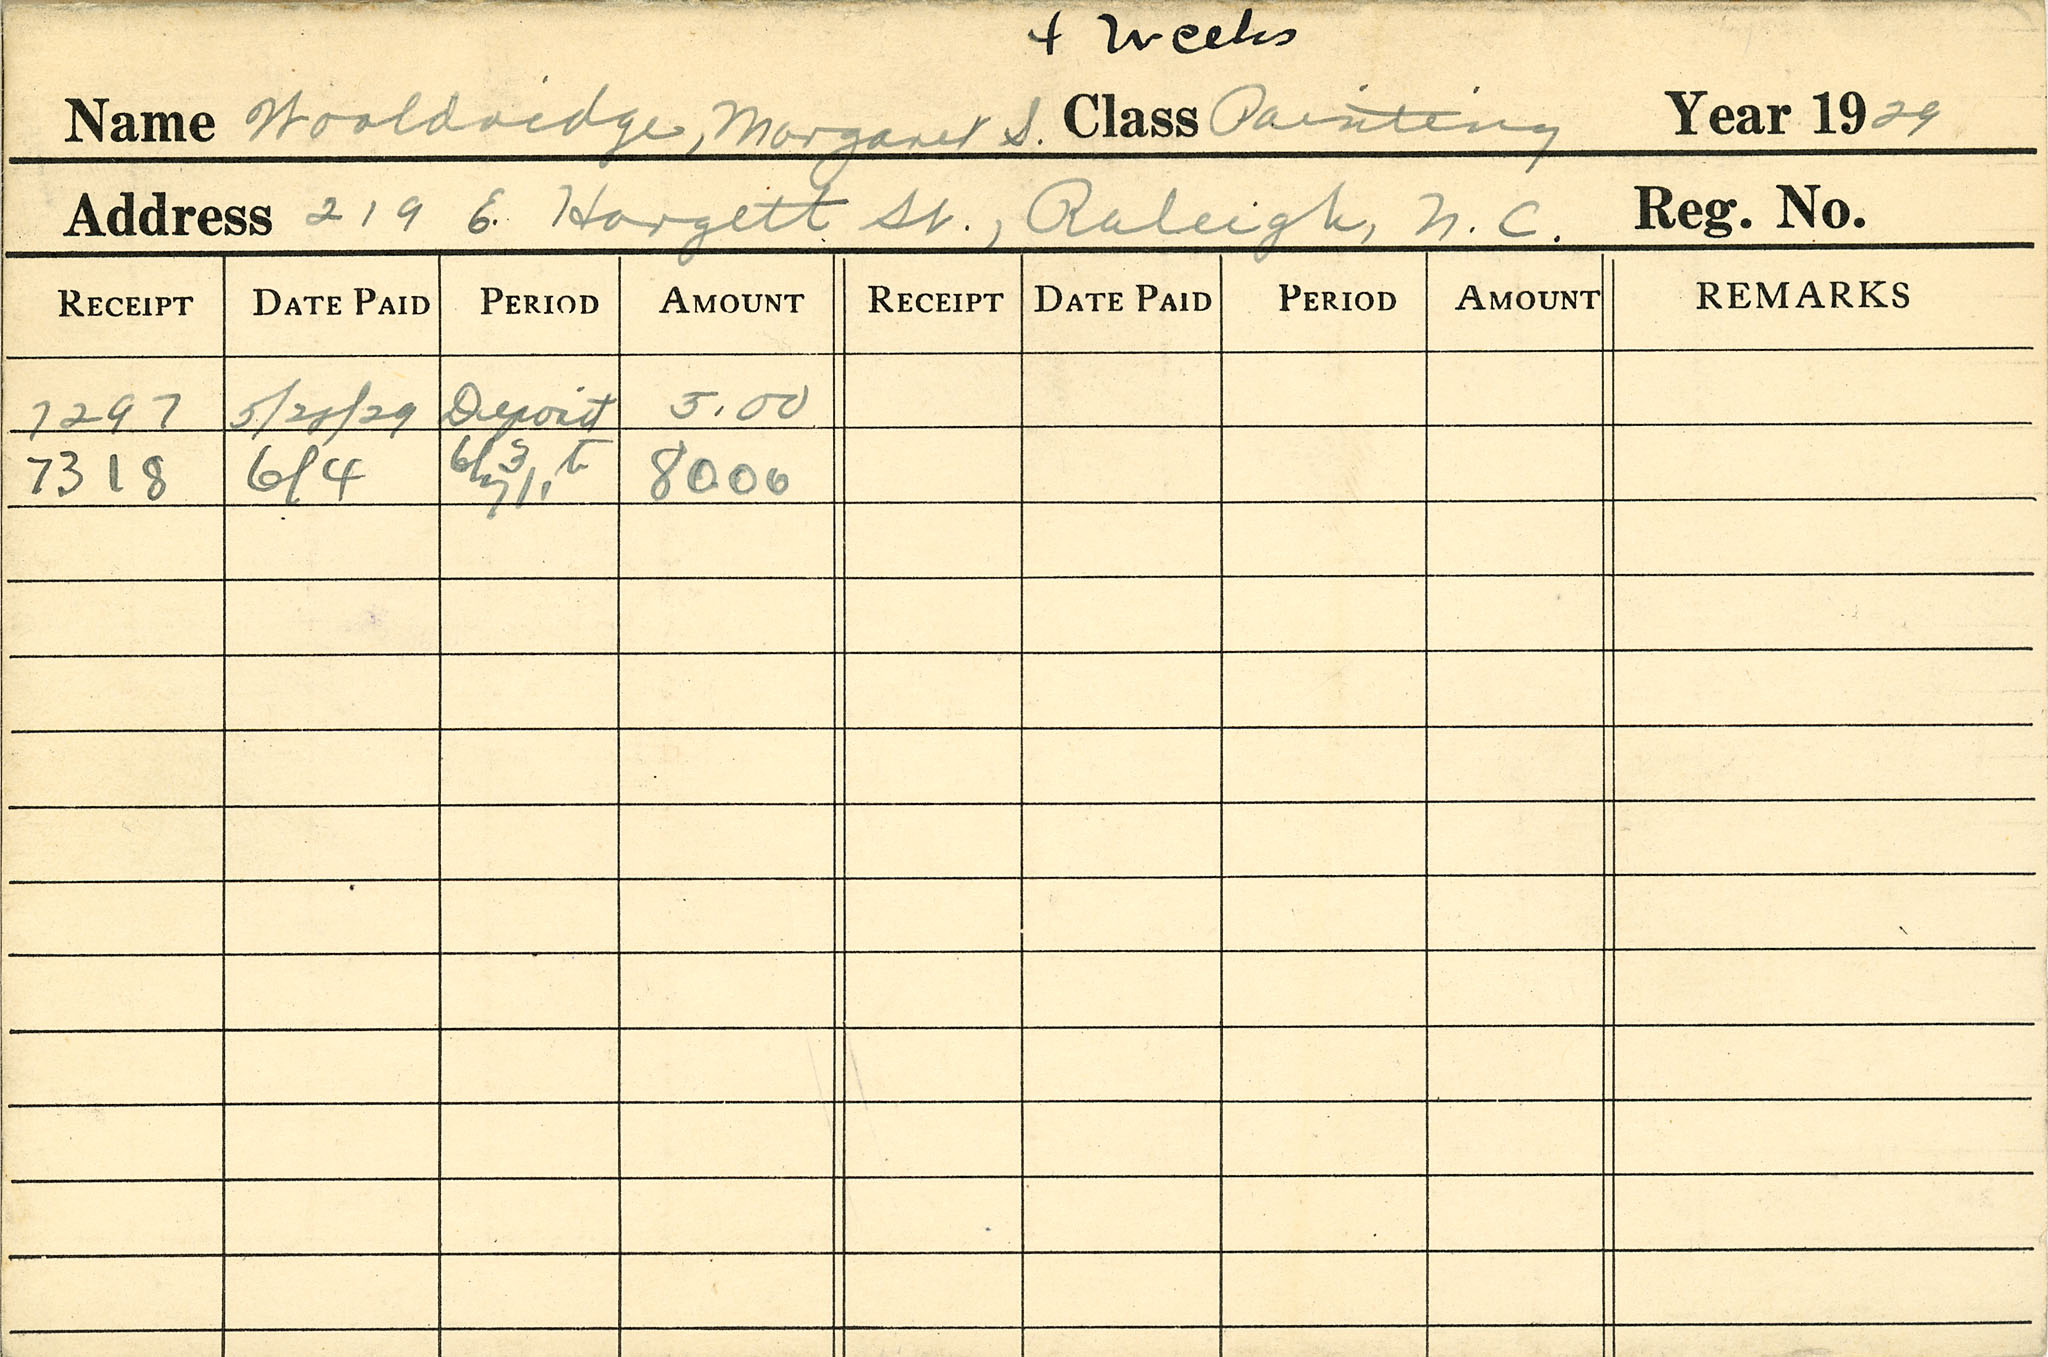 4 Weeks
Name Wooldridge, Margaret S. Class Painting Year 1929
Address 219 E. Hargett St., Raleigh, N. C. Reg. No.
RECEIPT DATE PAID PERIOD AMOUNT RECEIPT DATE PAID PERIOD AMOUNT REMARKS
7297 Deposit 5.00
7318 6/4 6/3 to 7/1 8000